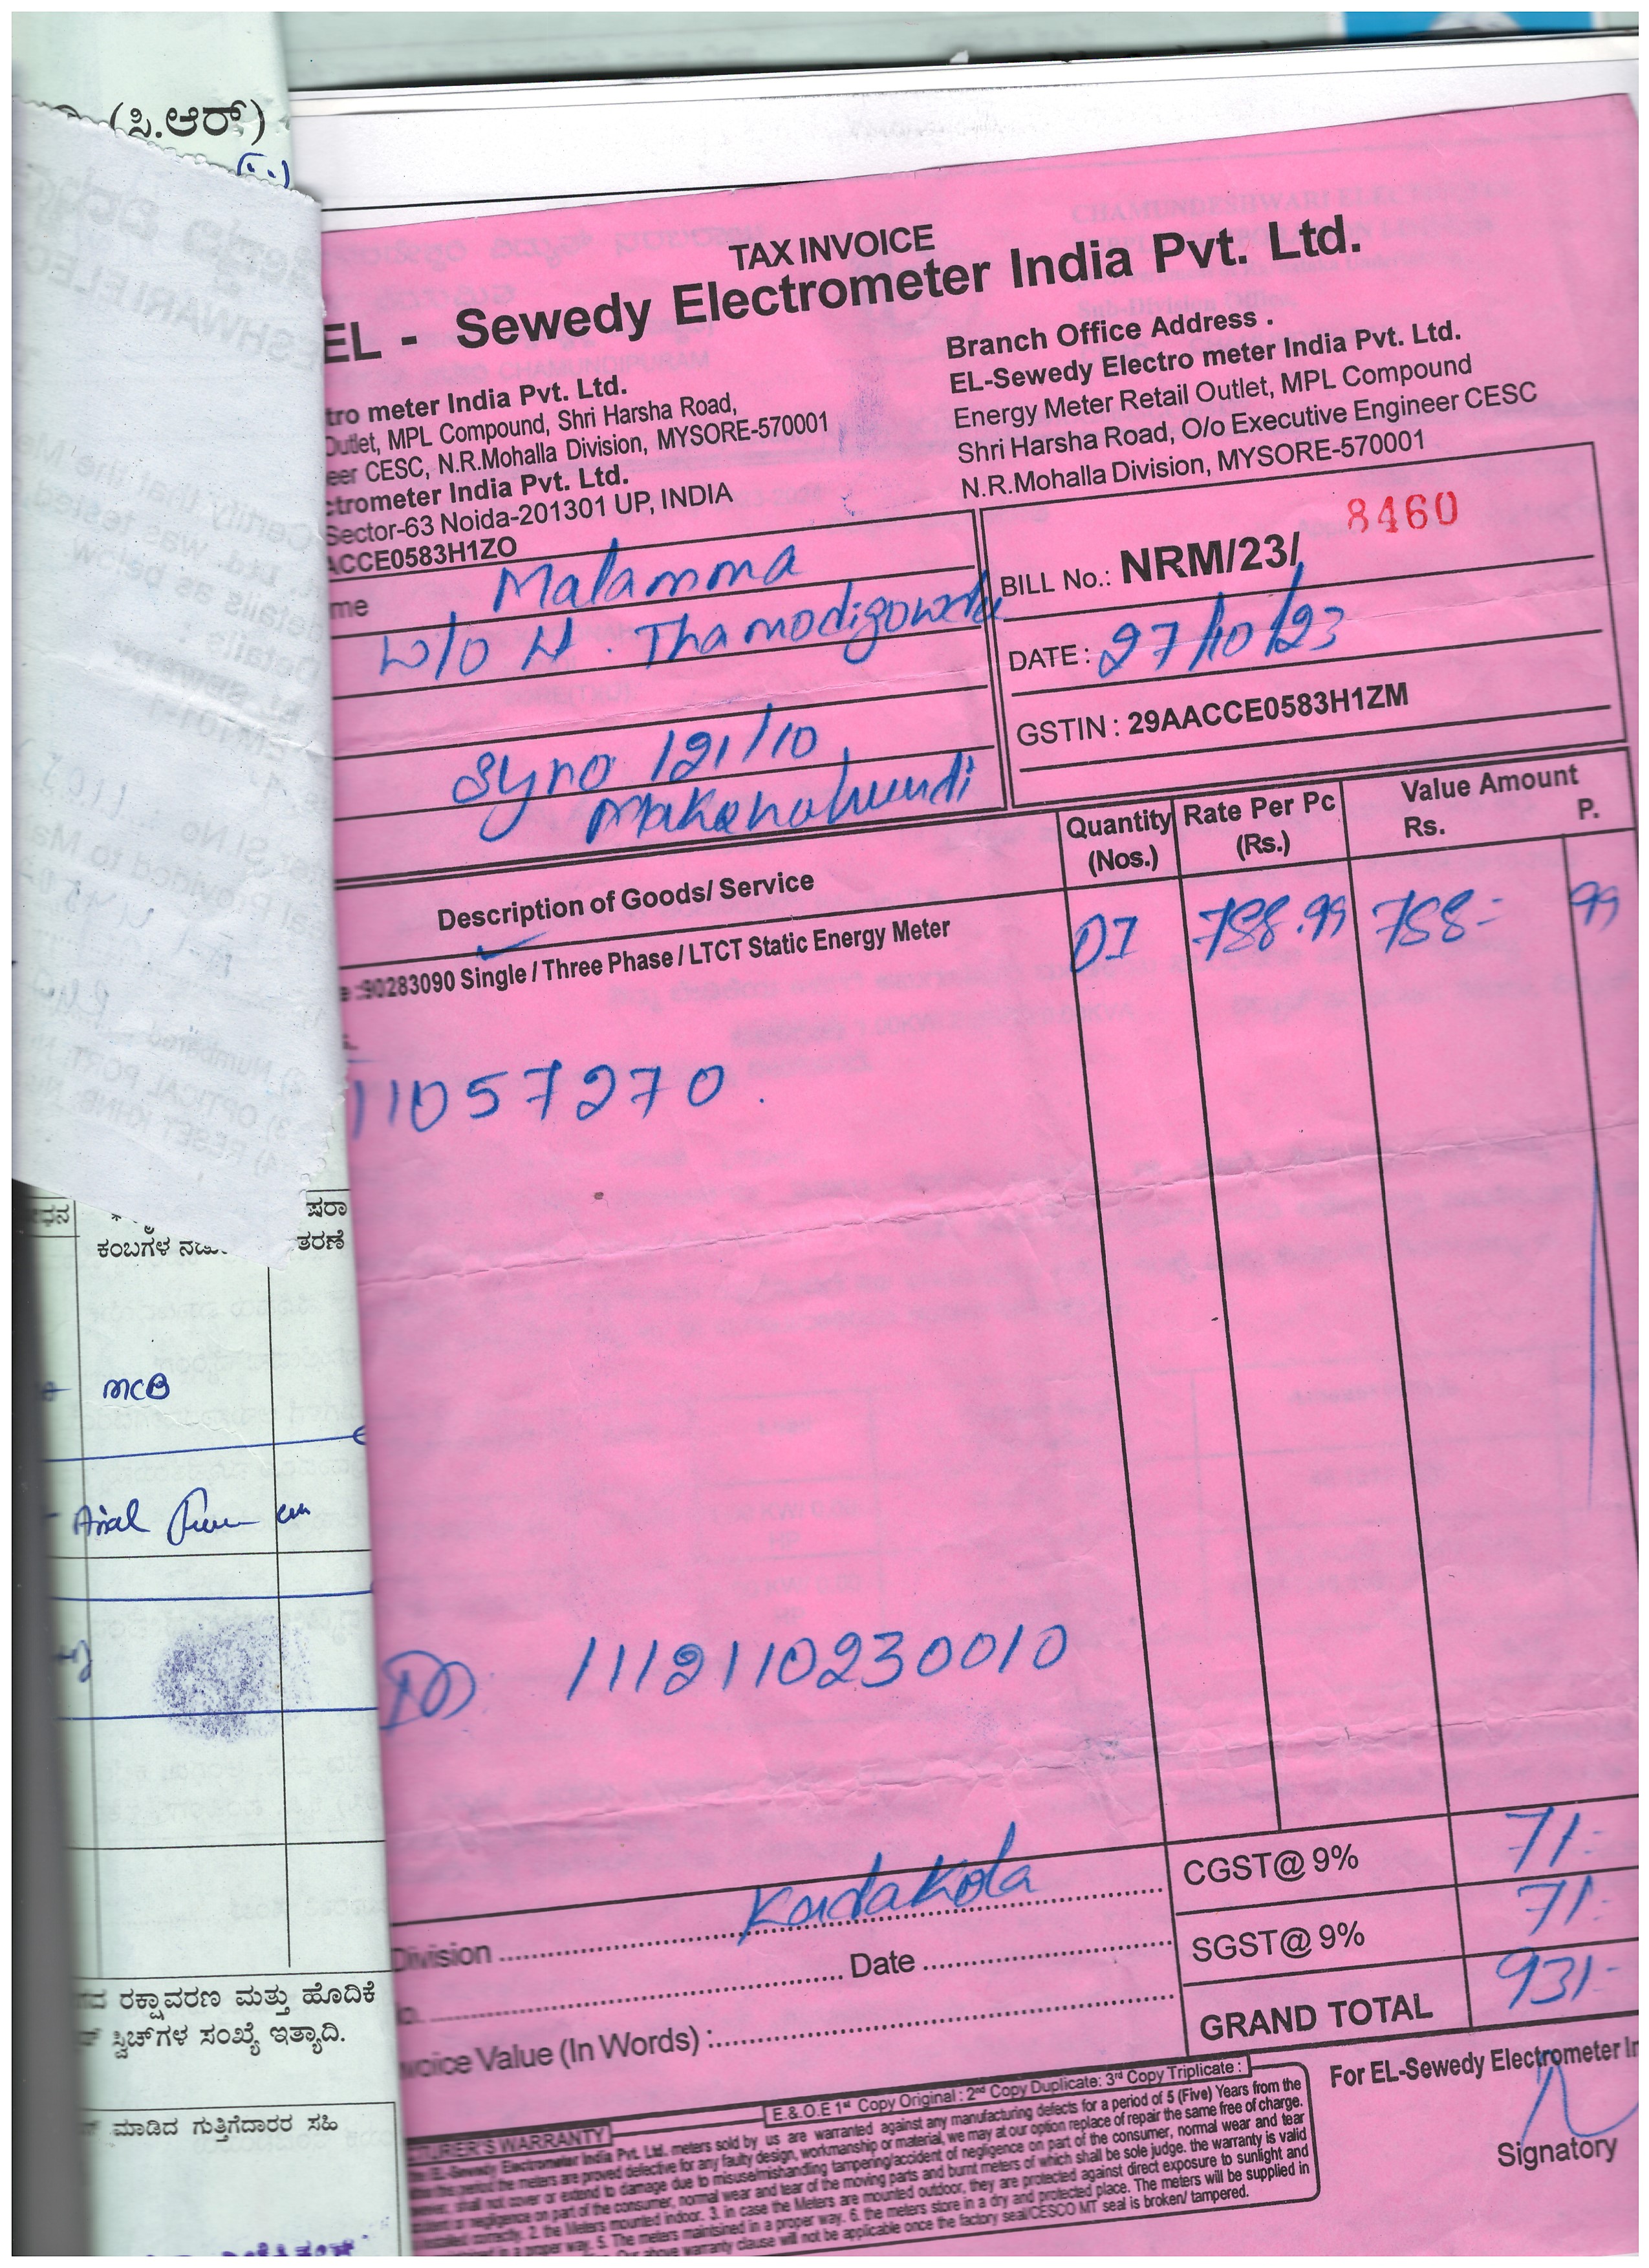 (ಸಿ.ಆರ್)
TAX INVOICE
EL - Sewedy Electrometer India Pvt. Ltd.
tro meter India Pvt. Ltd.
Outlet, MPL Compound, Shri Harsha Road,
eer CESC, N.R.Mohalla Division, MYSORE-570001
ctrometer India Pvt. Ltd.
Sector-63 Noida-201301 UP, INDIA
ACCE0583H1ZO
Branch Office Address .
EL-Sewedy Electro meter India Pvt. Ltd.
Energy Meter Retail Outlet, MPL Compound
Shri Harsha Road, O/o Executive Engineer CESC
N.R.Mohalla Division, MYSORE-570001
me Malamma
W/o H. Thamodigowda
Syno 121/10
Makanahundi
BILL No.: NRM/23/ 8460
DATE : 27/10/23
GSTIN : 29AACCE0583H1ZM
Description of Goods/ Service Quantity (Nos.) Rate Per Pc (Rs.) Value Amount Rs. P.
e :90283090 Single / Three Phase / LTCT Static Energy Meter 01 788.99 788= 99
11057270.
DD 1112110230010
ಷರಾ
ಕಂಬಗಳ
ತರಣೆ
MCB
CGST@ 9% 71=
Division Kadakola
SGST@ 9% 71=
Date
GRAND TOTAL 931=
voice Value (In Words) :
For EL-Sewedy Electrometer In
Signatory
E.& O.E 1st Copy Original : 2nd Copy Duplicate: 3rd Copy Triplicate :
TURER'S WARRANTY
EL-Sewedy Electrometer India Pvt. Ltd. meters sold by us are warranted against any manufacturing defects for a period of 5 (Five) Years from the
this period the meters are proved defective for any faulty design, workmanship or material, we may at our option replace of repair the same free of charge.
shall not cover or extend to damage due to misuse/mishandling tampering/accident of negligence on part of the consumer, normal wear and tear
or negligence on part of the consumer, normal wear and tear of the moving parts and burnt meters of which shall be sole judge. the warranty is valid
installed correctly. 2. the Meters mounted indoor. 3. in case the Meters are mounted outdoor, they are protected against direct exposure to sunlight and
in a proper way. 5. The meters maintsined in a proper way. 6. the meters store in a dry and protected place. The meters will be supplied in
Our above warranty clause will not be applicable once the factory seal/CESCO MT seal is broken/ tampered.
ರಕ್ಷಾವರಣ ಮತ್ತು ಹೊದಿಕೆ
ಸ್ವಿಚ್‌ಗಳ ಸಂಖ್ಯೆ ಇತ್ಯಾದಿ.
ಮಾಡಿದ ಗುತ್ತಿಗೆದಾರರ ಸಹಿ